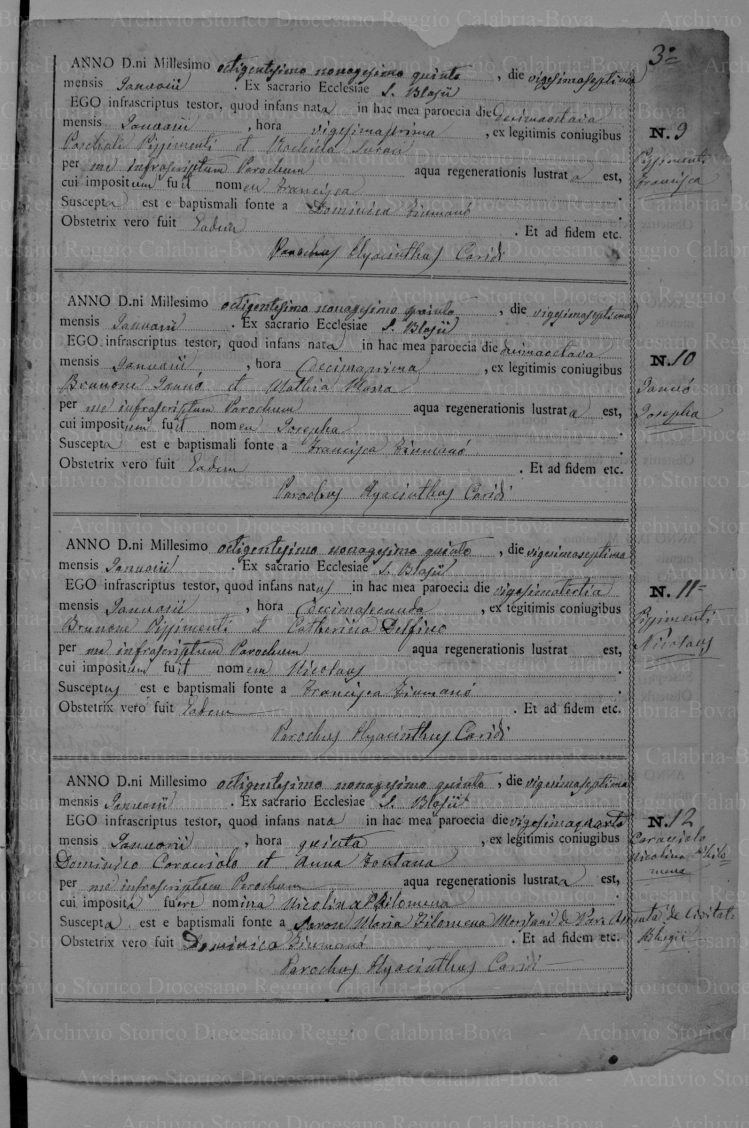 3º
ANNO D.ni Millesimo octigentesimo nonagesimo quinto, die vigesimaseptima
mensis Januarii. Ex sacrario Ecclesiae S. Blasii
EGO infrascriptus testor, quod infans nata in hac mea paroecia die decimaoctava
mensis Januarii, hora vigesimaprima, ex legitimis coniugibus
Paschali Pizzimenti et
per me infrascriptum Parochum aqua regenerationis lustrata est,
cui impositum fuit nomen Francisca
Suscepta est e baptismali fonte a Dominica Fiumanó.
Obstetrix vero fuit Eadem. Et ad fidem etc.
Parochus Hyacinthus Caridi
N. 9
Pizzimenti
Francisca
ANNO D.ni Millesimo octigentesimo nonagesimo quinto, die vigesimaseptima
mensis Januarii. Ex sacrario Ecclesiae S. Blasii
EGO infrascriptus testor, quod infans nata in hac mea paroecia die decimaoctava
mensis Januarii, hora decimaprima, ex legitimis coniugibus
Brunone Iannó et Matthia
per me infrascriptum Parochum aqua regenerationis lustrata est,
cui impositum fuit nomen Josepha.
Suscepta est e baptismali fonte a Francisca Fiumanó
Obstetrix vero fuit Eadem. Et ad fidem etc.
Parochus Hyacinthus Caridi
N. 10
Iannó
Josepha
ANNO D.ni Millesimo octigentesimo nonagesimo quinto, die vigesimaseptima
mensis Januarii. Ex sacrario Ecclesiae S. Blasii
EGO infrascriptus testor, quod infans natus in hac mea paroecia die vigesimatertia
mensis Januarii, hora decimasecunda, ex legitimis coniugibus
Brunone Pizzimenti et Catherina Delfino
per me infrascriptum Parochum aqua regenerationis lustrat est,
cui impositum fuit nomen Nicolaus
Susceptus est e baptismali fonte a Francisca Fiumanó.
Obstetrix vero fuit Eadem. Et ad fidem etc.
Parochus Hyacinthus Caridi
N. 11
Pizzimenti
Nicolaus
ANNO D.ni Millesimo octigentesimo nonagesimo quinto, die vigesimaseptima
mensis Januarii. Ex sacrario Ecclesiae S. Blasii
EGO infrascriptus testor, quod infans nata in hac mea paroecia die vigesimaquarta
mensis Januarii, hora quinta, ex legitimis coniugibus
Dominico Caracciolo et Anna Fontana
per me infrascriptum Parochum aqua regenerationis lustrata est,
cui imposita fuere nomina Nicolina Philomena
Suscepta est e baptismali fonte a Maria Filomena de Civitate
Rhegii
Obstetrix vero fuit Dominica Fiumanó. Et ad fidem etc.
Parochus Hyacinthus Caridi
N. 12
Caracciolo
Nicolina Philo-
mena
Archivio Storico Diocesano Reggio Calabria-Bova